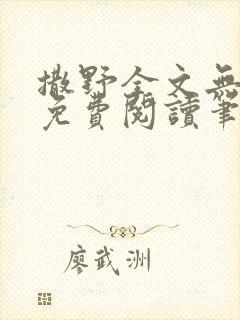 撒野全文無
免費閱讀筆
廖武洲